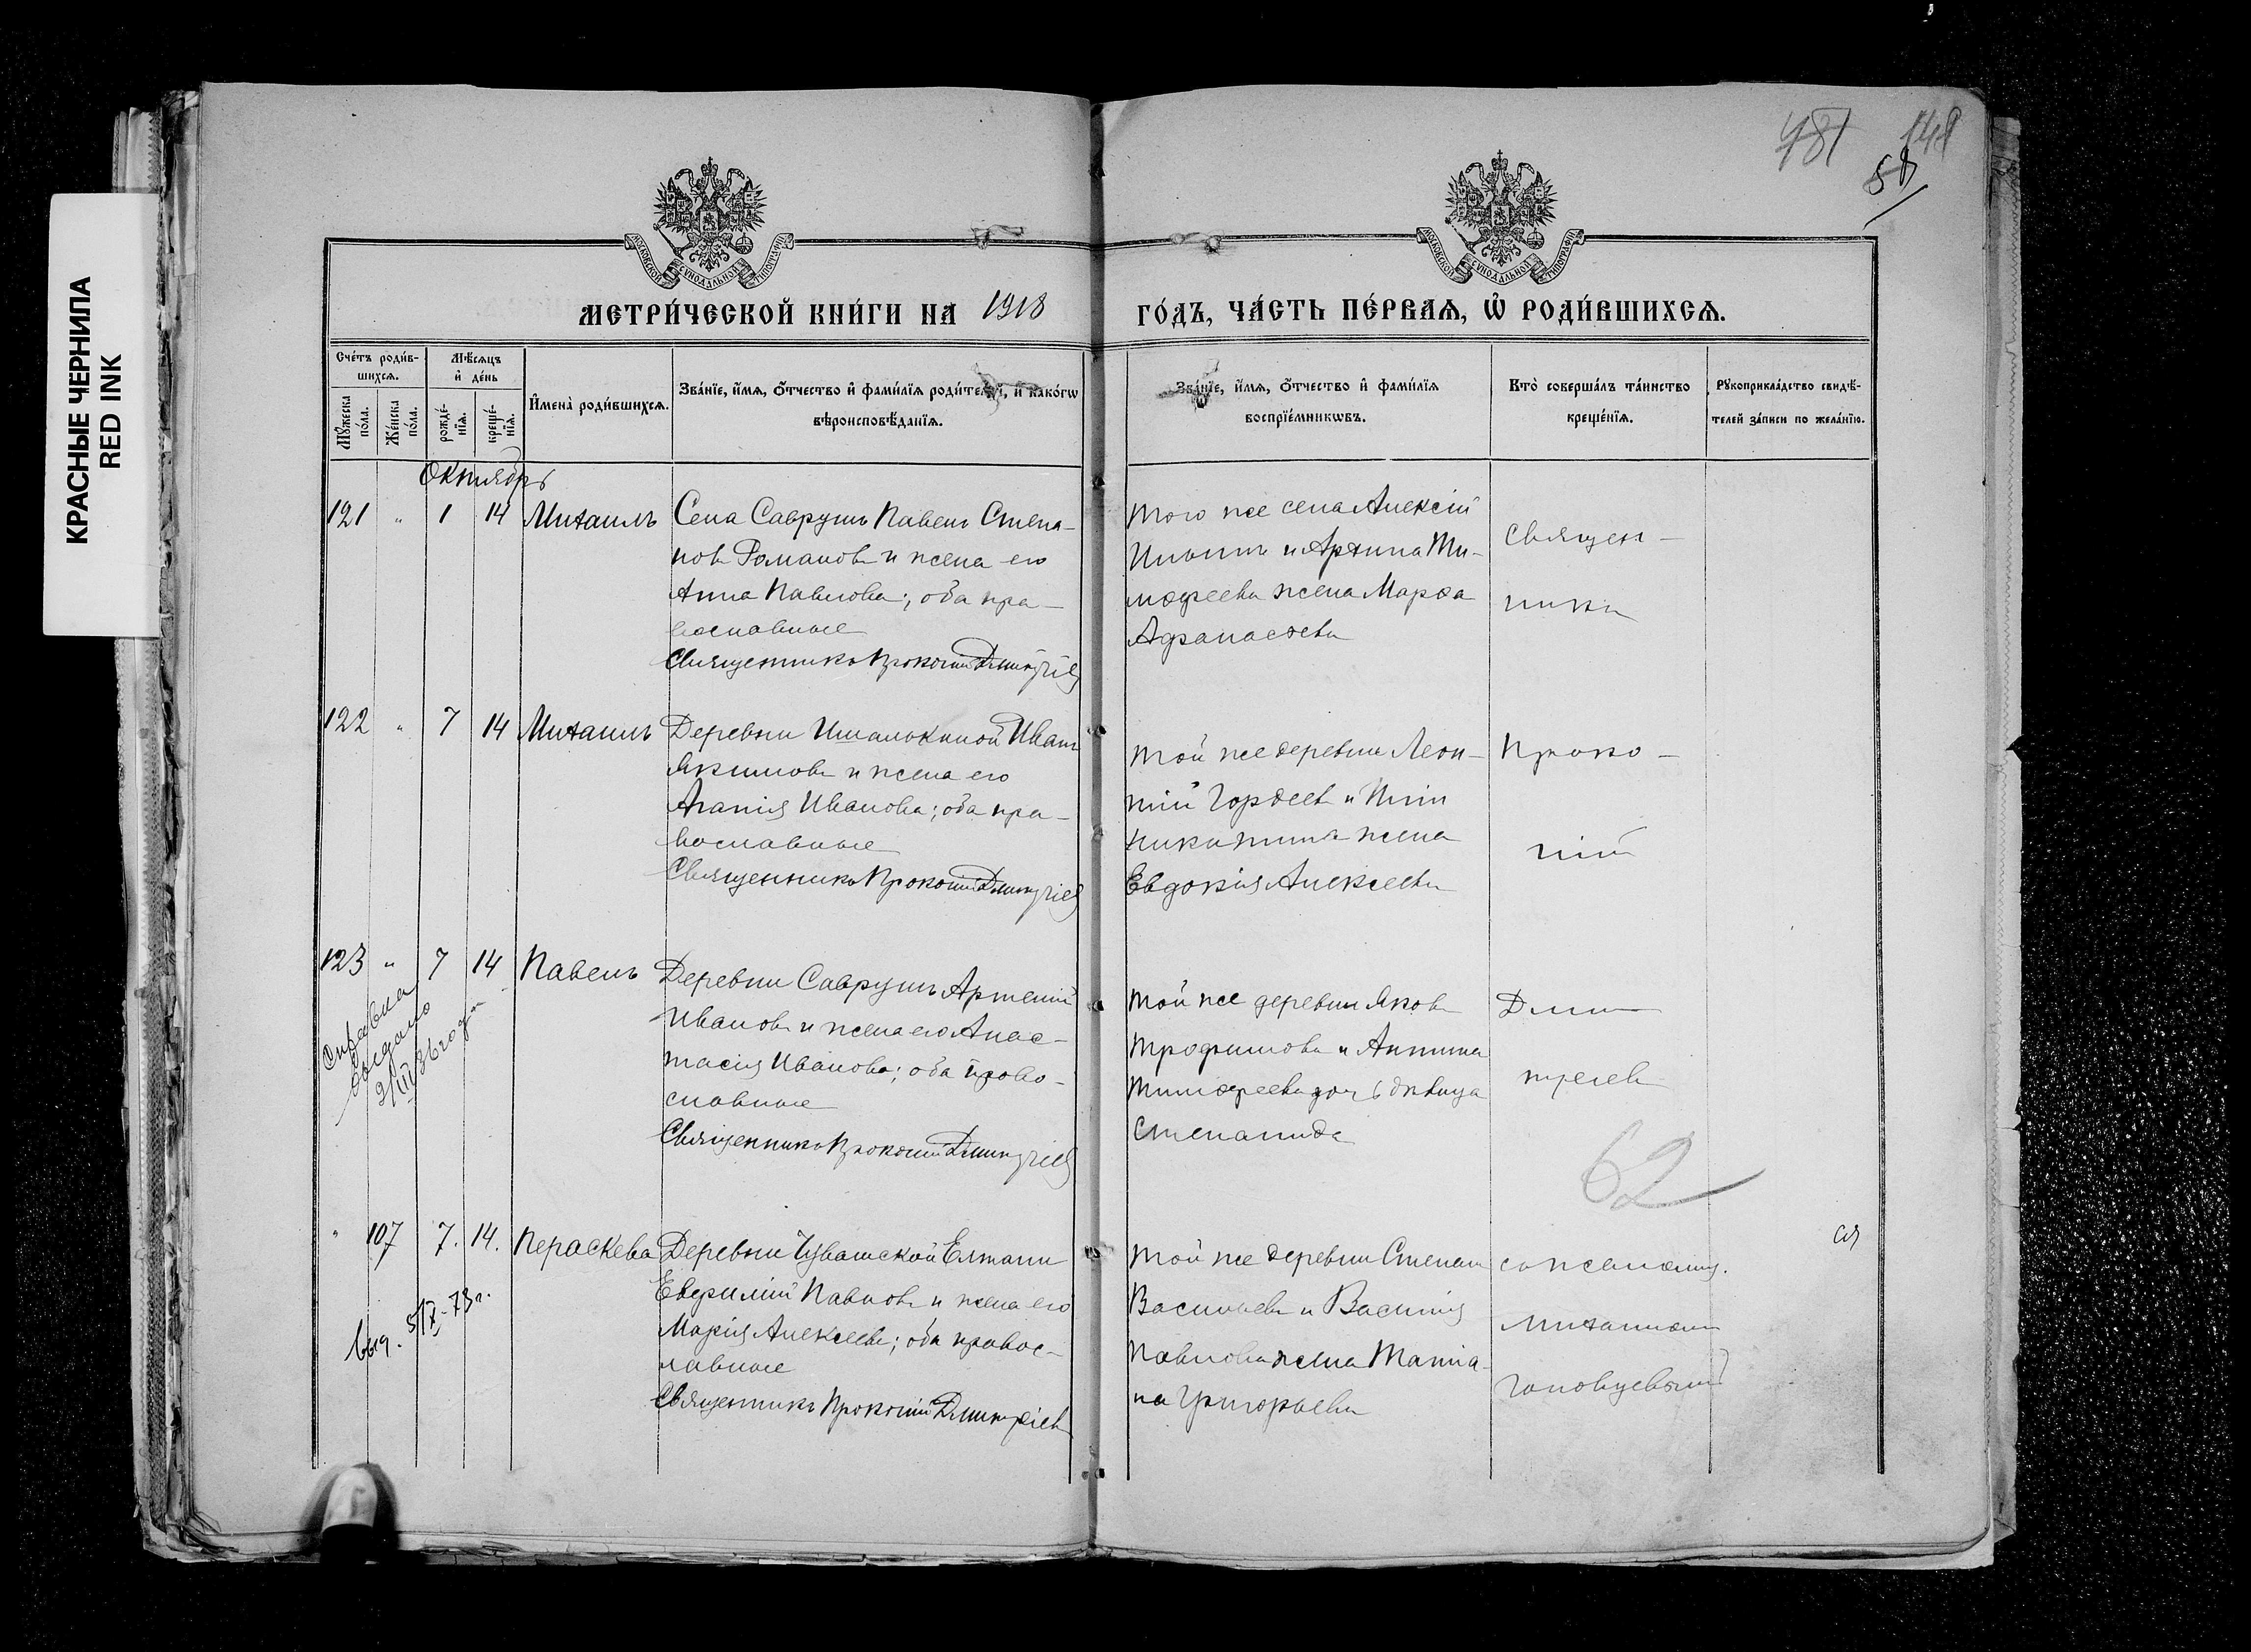 КРАСНЫЕ ЧЕРНИЛА
RED INK
481
148
58
МОСКОВСКОЙ СѴНОДАЛЬНОЙ ТИПОГРАФІИ
МОСКОВСКОЙ СѴНОДАЛЬНОЙ ТИПОГРАФІИ
МЕТРИ́ЧЕСКОЙ КНИ́ГИ НА 1918
ГО́ДЪ, ЧА́СТЬ ПЕ́РВАѦ, Ѡ҆ РОДИ́ВШИХСѦ.
Сче́тъ роди́в-
шихсѧ.
Мѹ́жеска
по́ла.
Же́нска
по́ла.
Мѣ́сѧцъ
и҆ де́нь
рожде́-
нїѧ.
креще́-
нїѧ.
И҆мена̀ роди́вшихсѧ.
Зва́нїе, и҆́мѧ, ѻ҆́тчество и҆ фами́лїѧ роди́телей, и҆ како́гѡ
вѣроисповѣ́данїѧ.
Зва́нїе, и҆́мѧ, ѻ҆́тчество и҆ фами́лїѧ
воспрїе́мникѡвъ.
Кто̀ соверша́лъ та́инство
креще́нїѧ.
Рѹкоприкла́дство свидѣ́-
телей за́писи по жела́нїю.
Октябрь
121 „ 1 14 Михаилъ
Села Саврушъ Павелъ Степа-
новъ Романовъ и жена его
Анна Павлова; оба пра-
вославные
Священникъ Прокопій Дмитріев
Того же села Алексій
Ильинъ и Архипа Ти-
мофеева жена Марѳа
Афанасьева
Священ-
никъ
122 „ 7 14 Михаилъ
Деревни Ишалькиной Иванъ
Якимовъ и жена его
Агапія Иванова; оба пра-
вославные
Священникъ Прокопій Дмитріев
Той же деревни Леон-
тій Гордеевъ и
Никитина жена
Евдокія Алексеева
Проко-
пій
123 „ 7 14 Павелъ
Справка
выдано
2/III 36 года
Деревни Саврушъ Артемій
Ивановъ и жена его Анас-
тасія Иванова; оба право-
славные
Священникъ Прокопій Дмитріев
Той же деревни Яковъ
Трофимовъ и Антипа
Тимофеева дочь дѣвица
Степанида
Дми-
тріевъ
62
„ 107 7. 14. Пераскева
выд. 5/X-73г.
Деревни Чувашской Елтани
Евфимій Павловъ и жена его
Марія Алексеева; оба правос-
лавные
Священникъ Прокопій Дмитріевъ
Той же деревни Степанъ
Васильевъ и Василія
Павлова жена Татіа-
на Григорьева
съ псаломщ.
Михаиломъ
Головцевымъ
ся